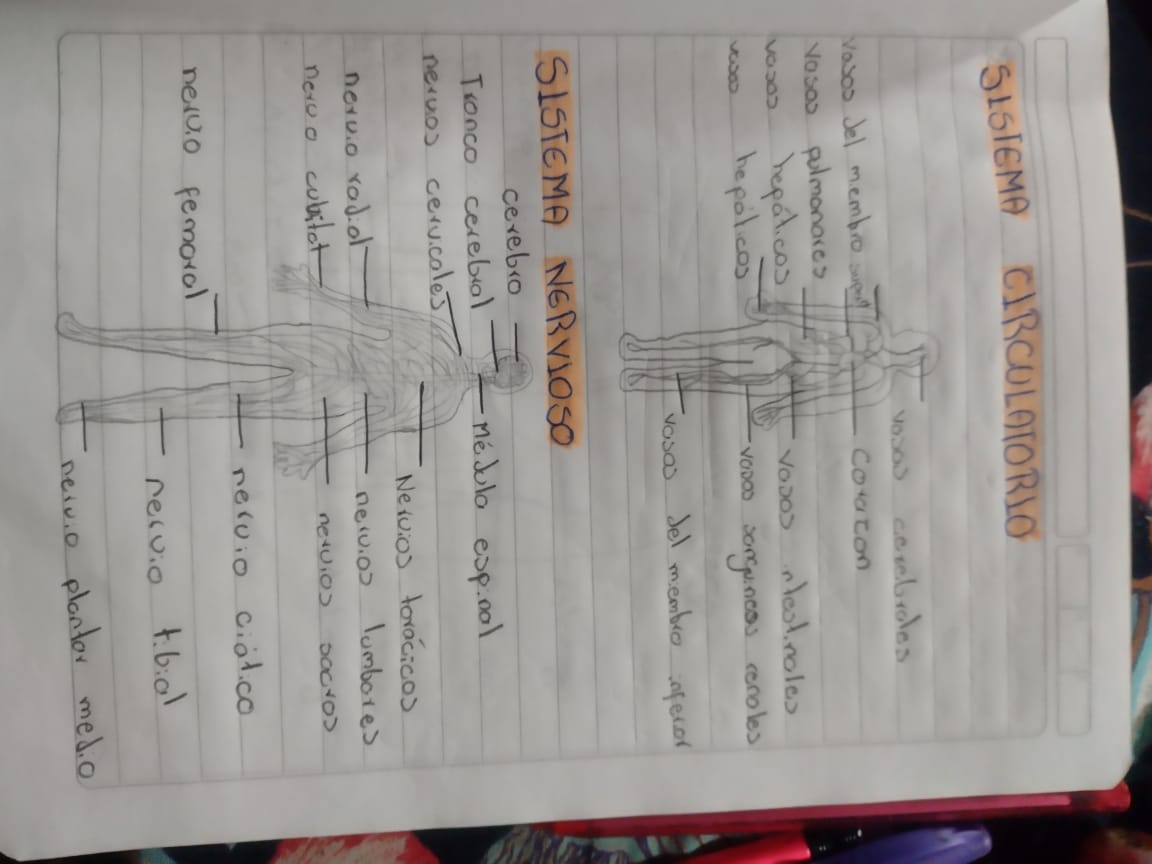 SISTEMA CIRCULATORIO
vasos cerebrales
vasos del miembro
corazon
vasos pulmonares
vasos hepáticos
vasos intestinales
vasos hepáticos
vasos sanguineos renales
vasos del miembro inferior
SISTEMA NERVIOSO
cerebro
Tronco cerebral
Médula espinal
nervios cervicales
Nervios torácicos
nervio radial
nervios lumbares
nervio cubital
nervios sacros
nervio ciático
nervio femoral
nervio tibial
nervio plantar medio